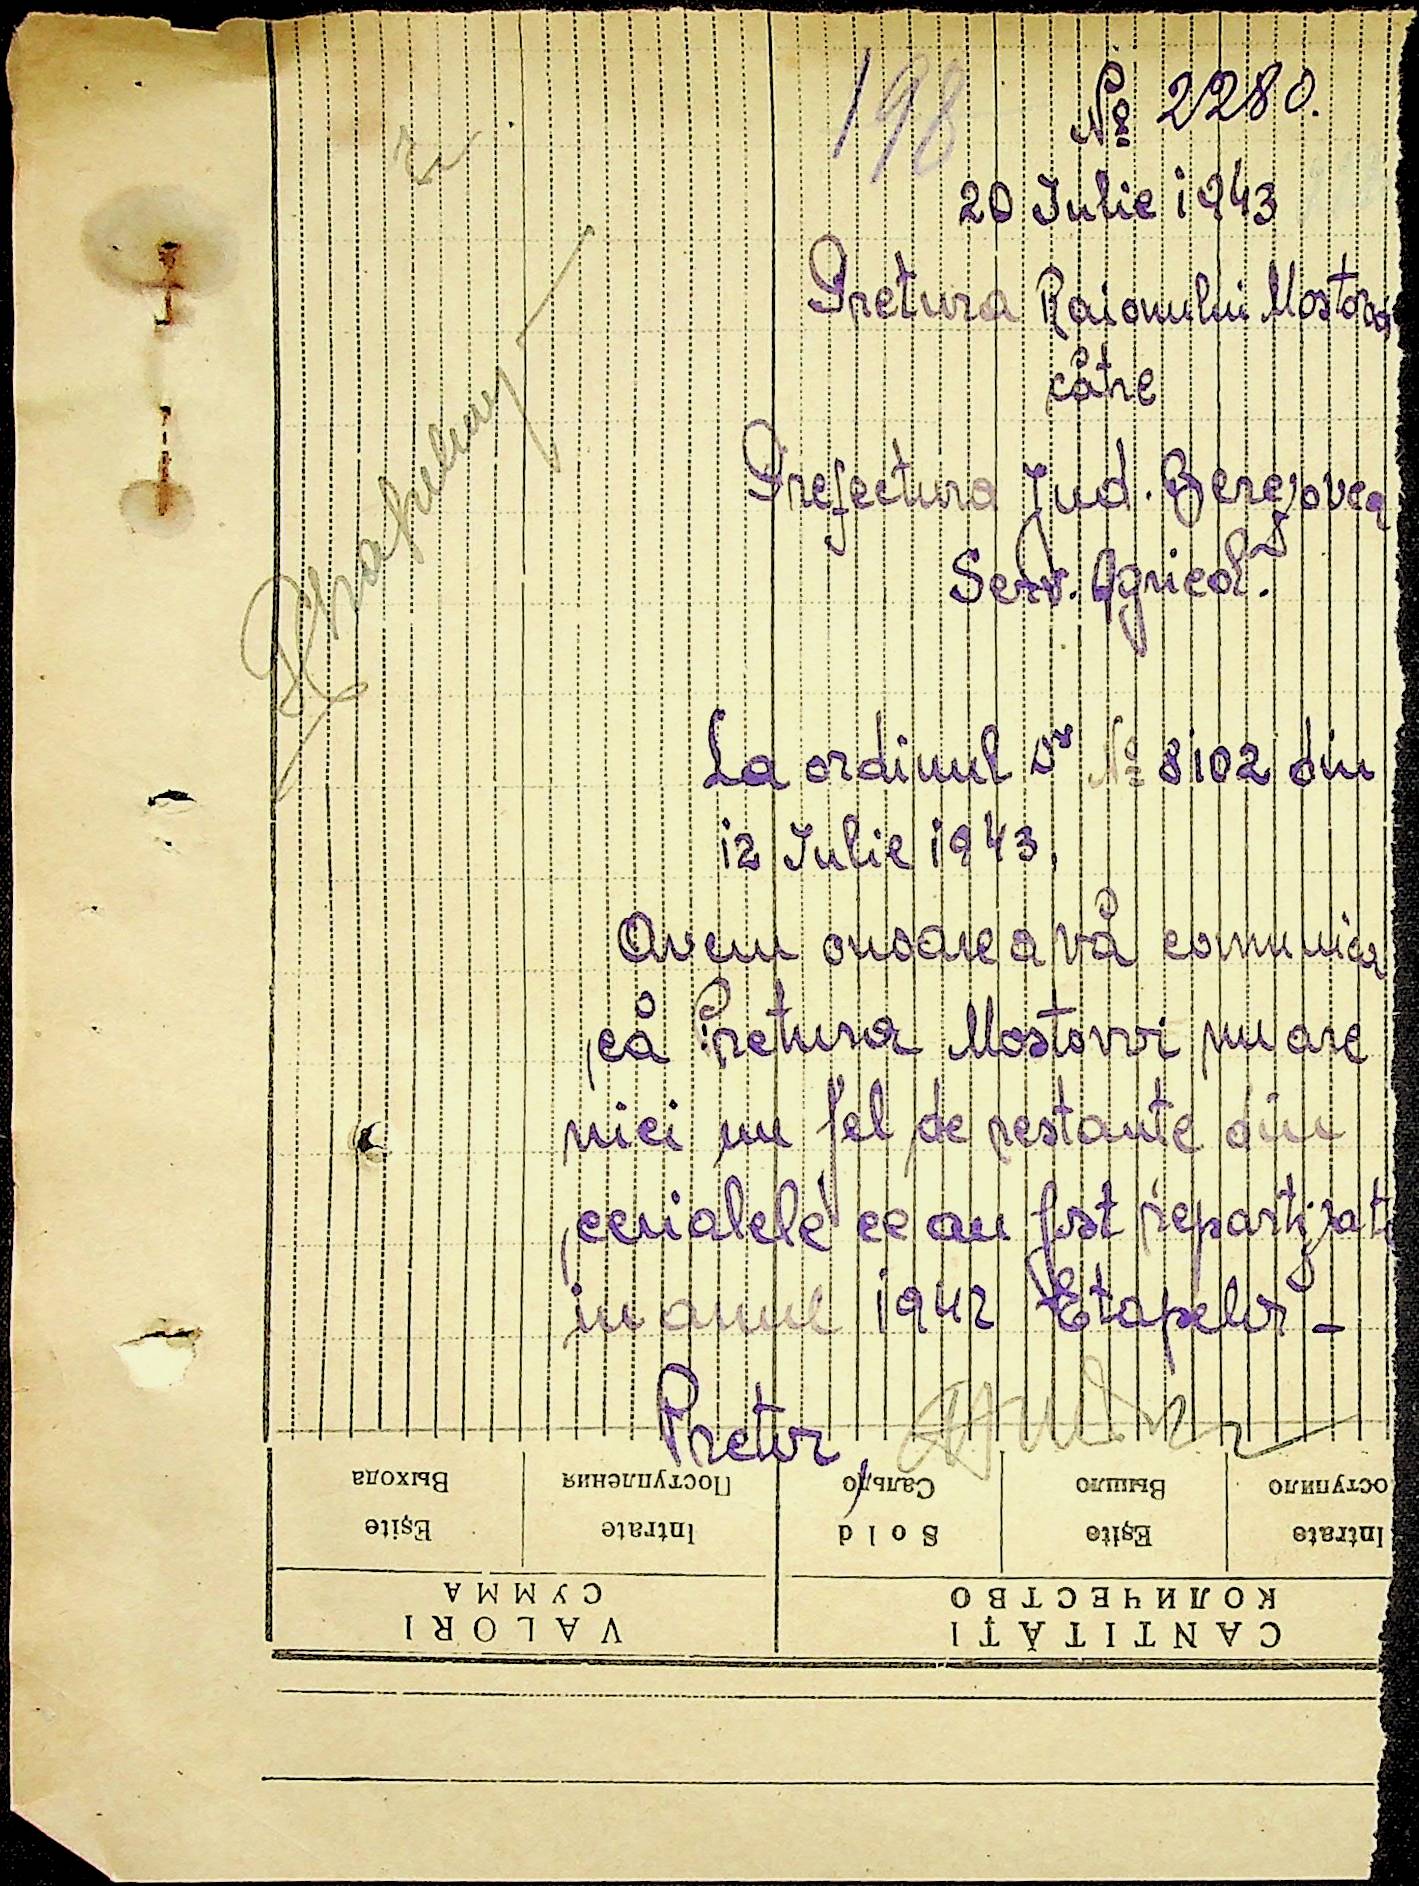 198
№ 2280.
20 Iulie 1943
Pretura Raionului Mostovoi
către
Prefectura Jud. Berezovca
Serv. Agricol.
La ordinul Dv № 8102 din
12 Iulie 1943,
Avem onoarea vă comunica
că Pretura Mostovoi nu are
nici un fel de restante din
cerialele ce au fost repartizate
in anul 1942 Etapelor –
Pretor,
Выхода Поступления Сальдо Вышло оступило
Eşite Intrate Sold Eşite Intrate
СУММА КОЛИЧЕСТВО
VALORI CANTITĂŢI